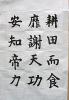 耕田而食
靡謝天功
安知帝力